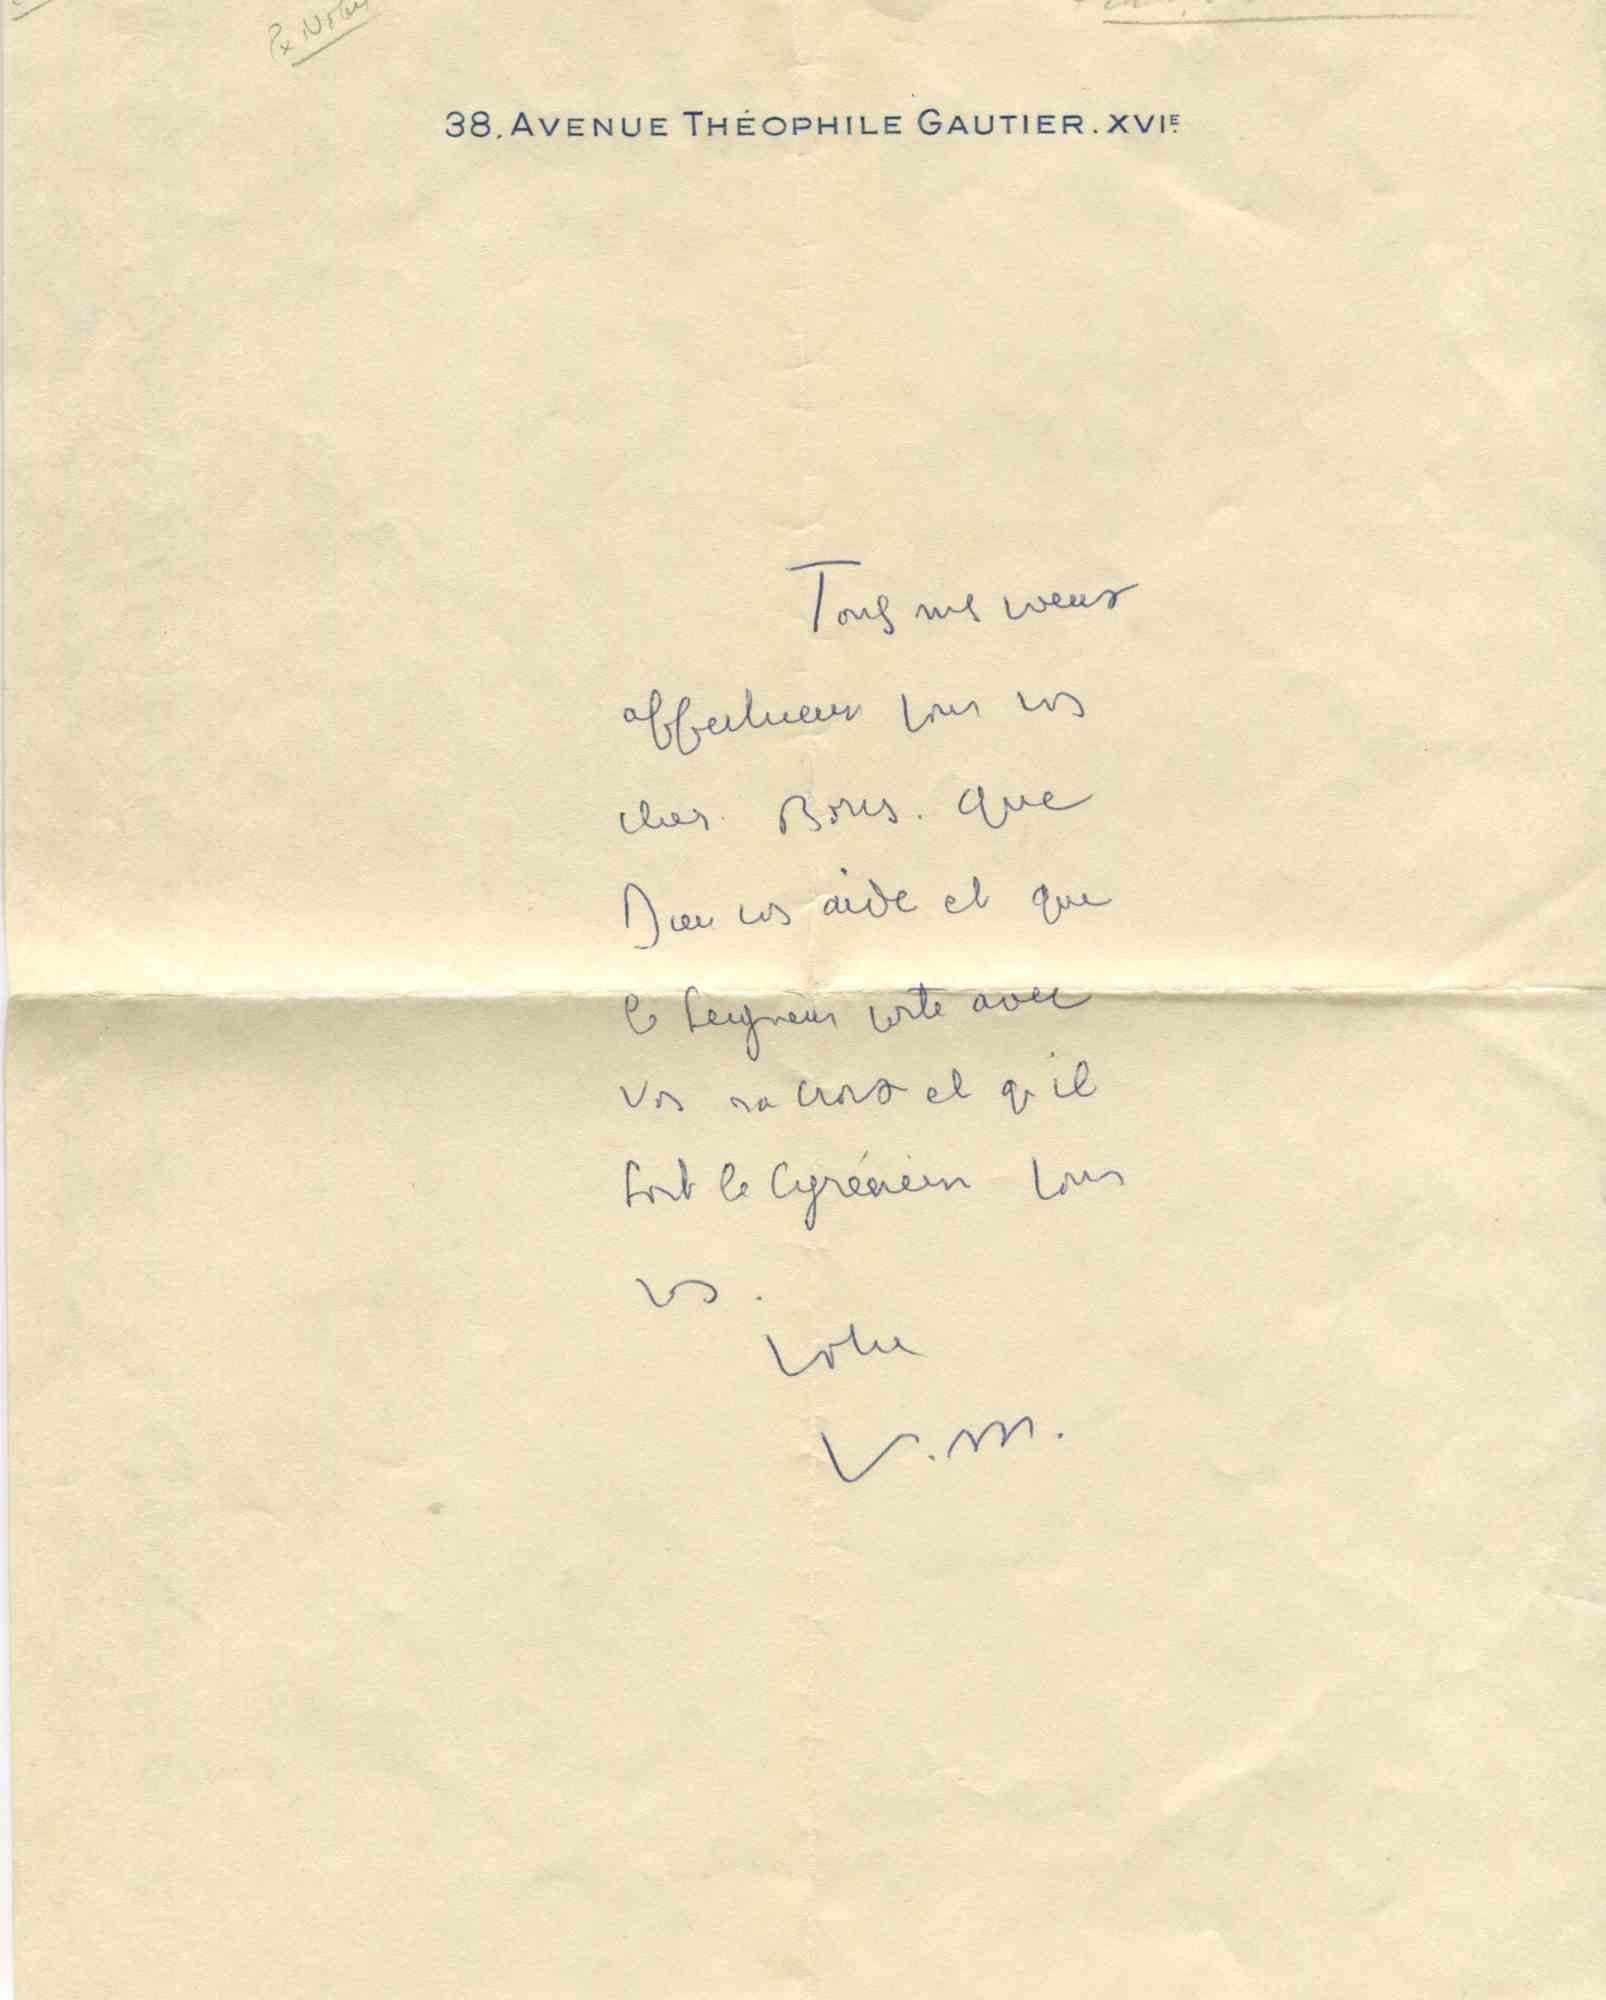 38, AVENUE THÉOPHILE GAUTIER. XVIE
Tous mes voeux
affectueux pour vos
cher Boris. Que
Dieu vos aide et que
le Seigneur porte avec
vos sa croix et qu'il
soit le Cyrénéen pour
vos.
Votre
V. M.